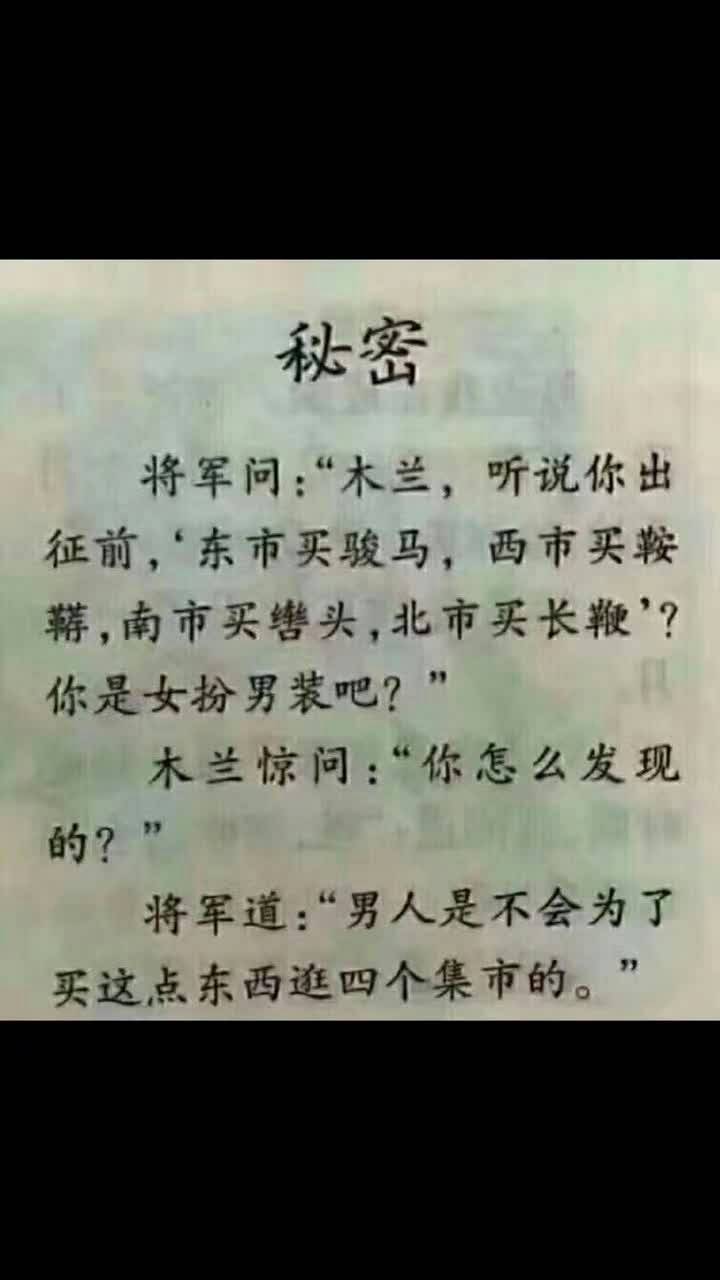 秘密
将军问：“木兰，听说你出
征前，‘东市买骏马，西市买鞍
鞯，南市买辔头，北市买长鞭’？
你是女扮男装吧？”
木兰惊问：“你怎么发现
的？”
将军道：“男人是不会为了
买这点东西逛四个集市的。”